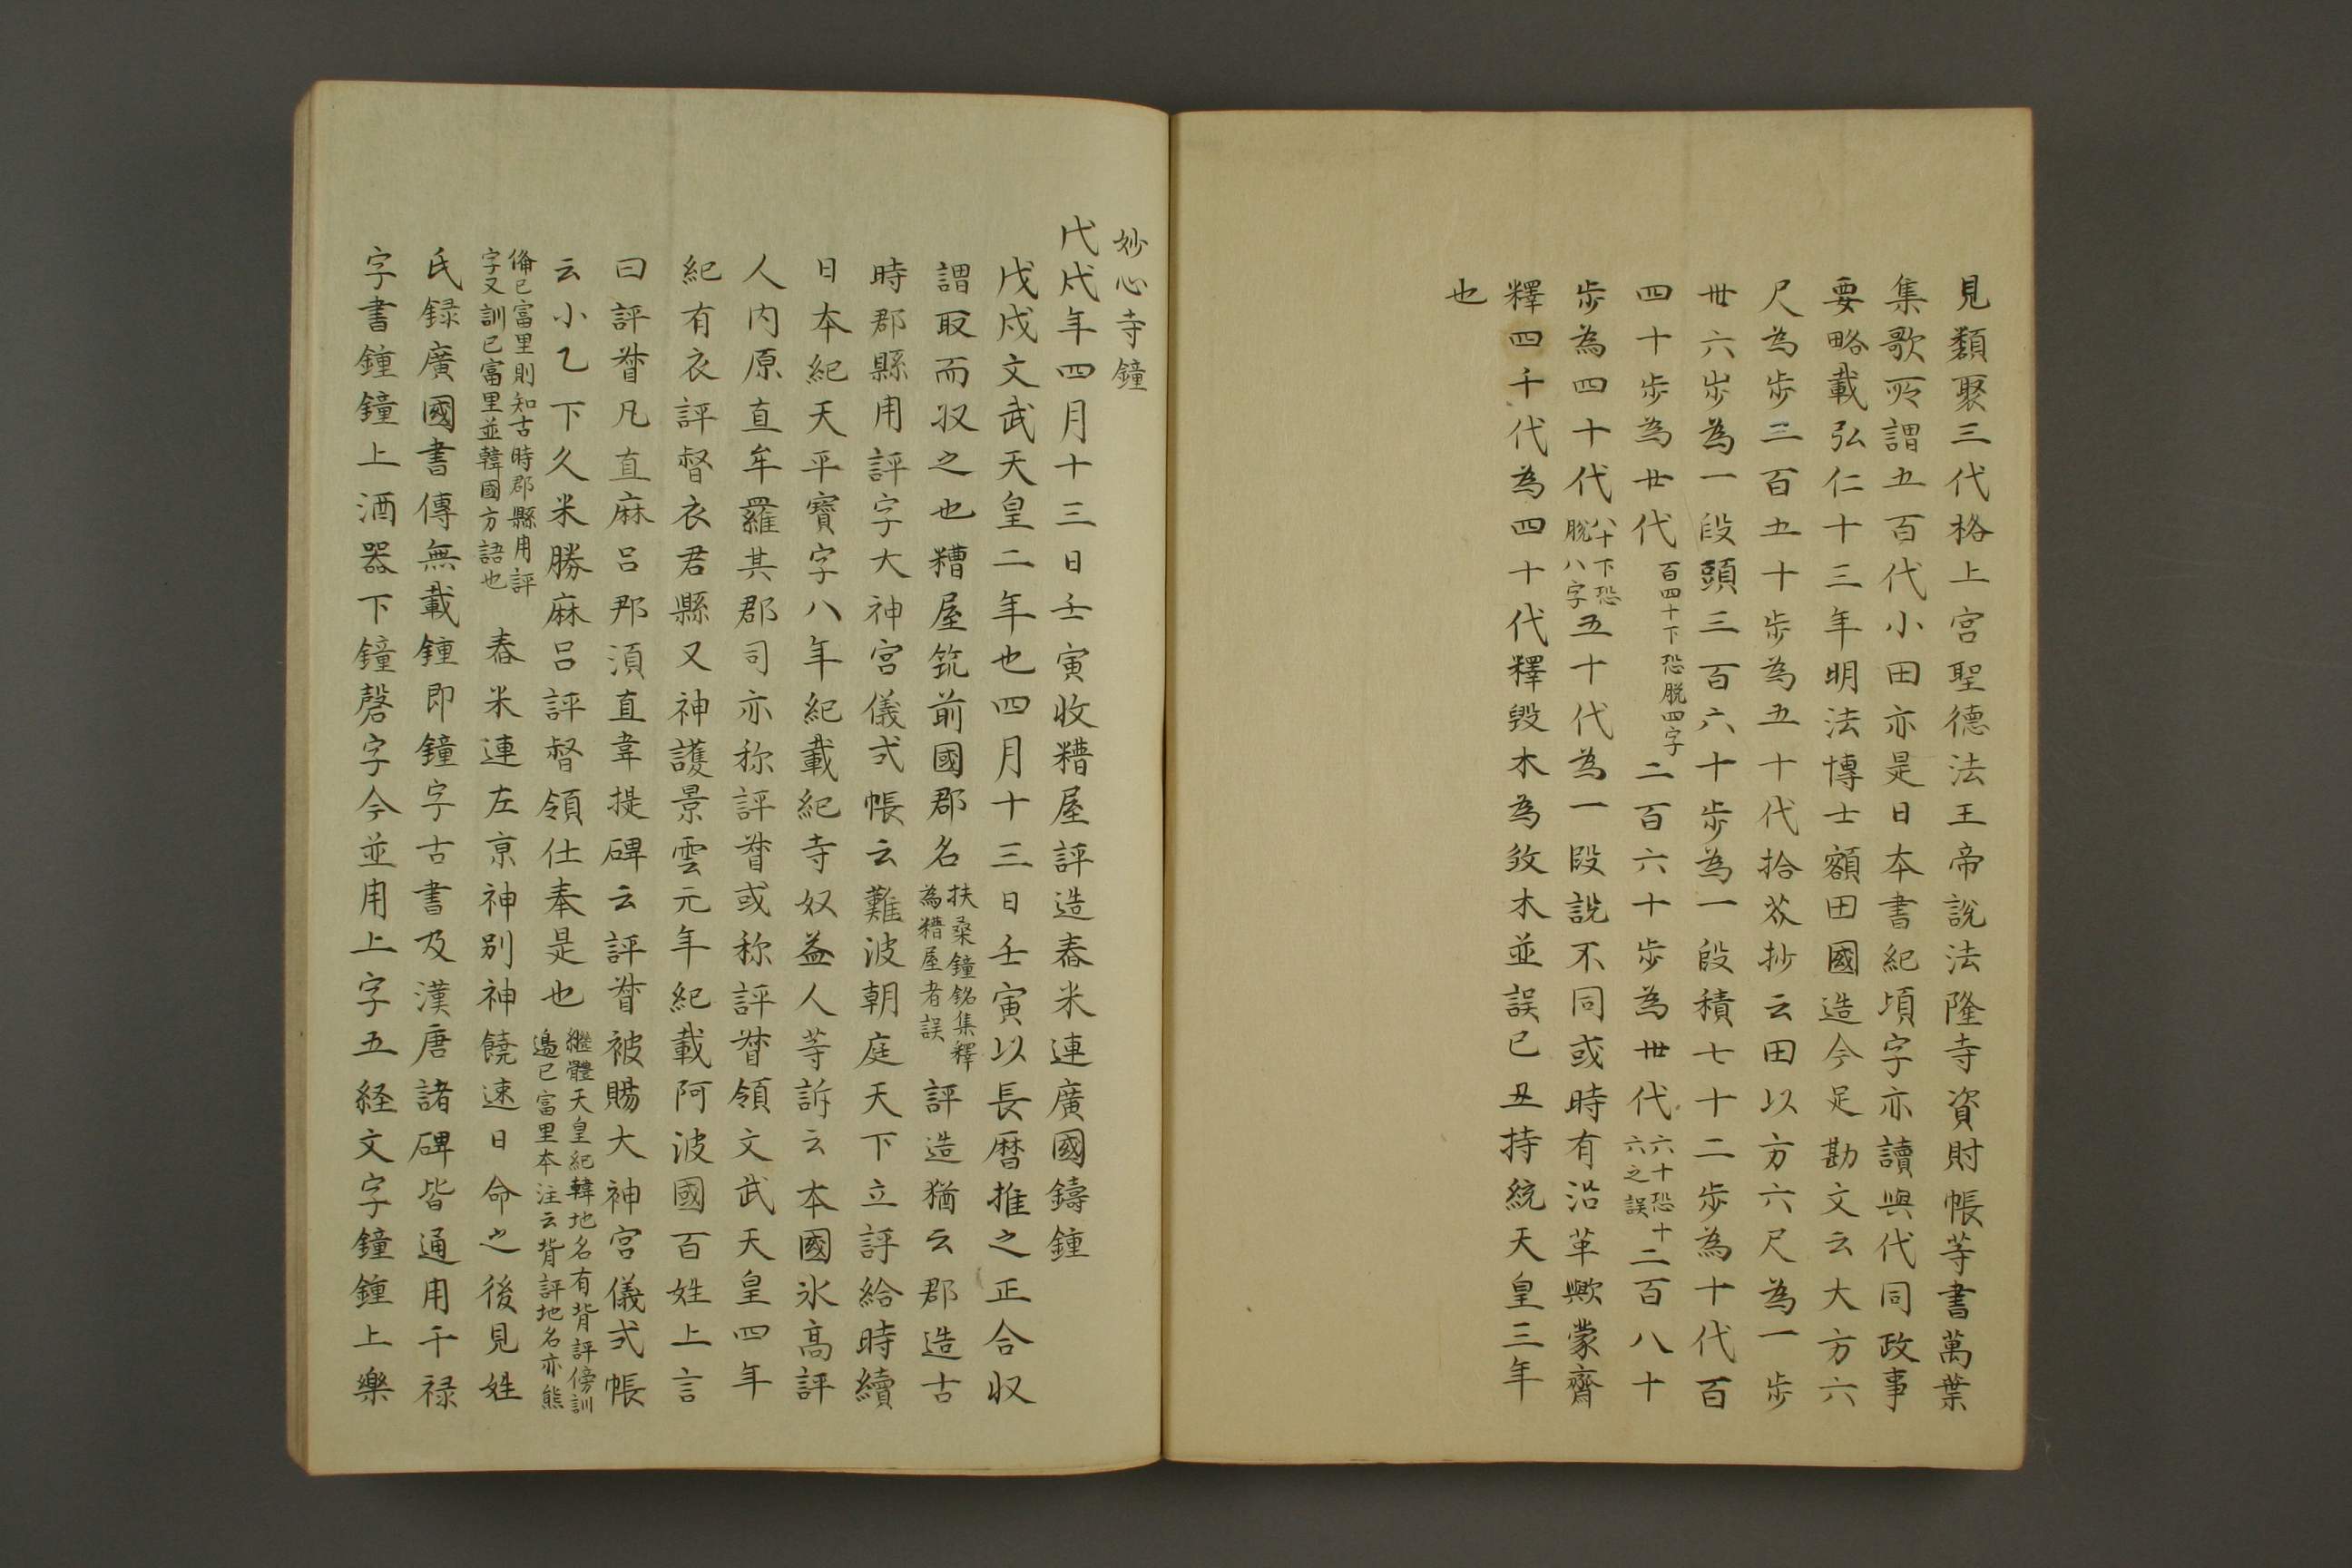 見類聚三代格上宮聖德法王帝說法隆寺資財帳等書萬葉
集歌所謂五百代小田亦是日本書紀頃字亦讀與代同政事
要略載弘仁十三年明法博士額田國造今足勘文云大方六
尺為步步三百五十步為五十代拾芥抄云田以方六尺為一步
卅六步為一段頭三百六十步為一段積七十二步為十代百
四十步為廿代百四十下恐脫四字二百六十步為卅代六十恐十六之誤二百八十
步為四十代八十下恐脫八字五十代為一段說不同或時有沿革歟蒙齋
釋四千代為四十代釋毀木為攽木並誤己丑持統天皇三年
也
妙心寺鐘
戊戌年四月十三日壬寅收糟屋評造舂米連廣國鑄鍾
戊戌文武天皇二年也四月十三日壬寅以長曆推之正合收
謂取而收之也糟屋筑前國郡名扶桑鐘銘集釋為糟屋者誤評造猶云郡造古
時郡縣用評字大神宮儀式帳云難波朝庭天下立評給時續
日本紀天平寶字八年紀載紀寺奴益人等訴云本國氷高評
人內原直牟羅其郡司亦称評督或称評督領文武天皇四年
紀有衣評督衣君縣又神護景雲元年紀載阿波國百姓上言
曰評督凡直麻呂那須直韋提碑云評督被賜大神宮儀式帳
云小乙下久米勝麻呂評督領仕奉是也繼體天皇紀韓地名有背評傍訓邉已富里本注云背評地名亦熊
備已富里則知古時郡縣用評字又訓已富里並韓國方語也舂米連左京神別神饒速日命之後見姓
氏録廣國書傳無載鍾即鐘字古書及漢唐諸碑皆通用干禄
字書鍾鐘上酒器下鐘磬字今並用上字五経文字鐘鍾上樂